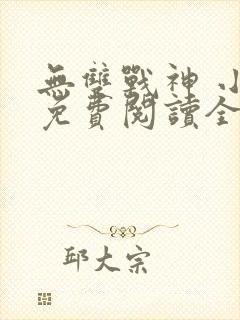 無雙戰神 小
免費閱讀全
邱大宗